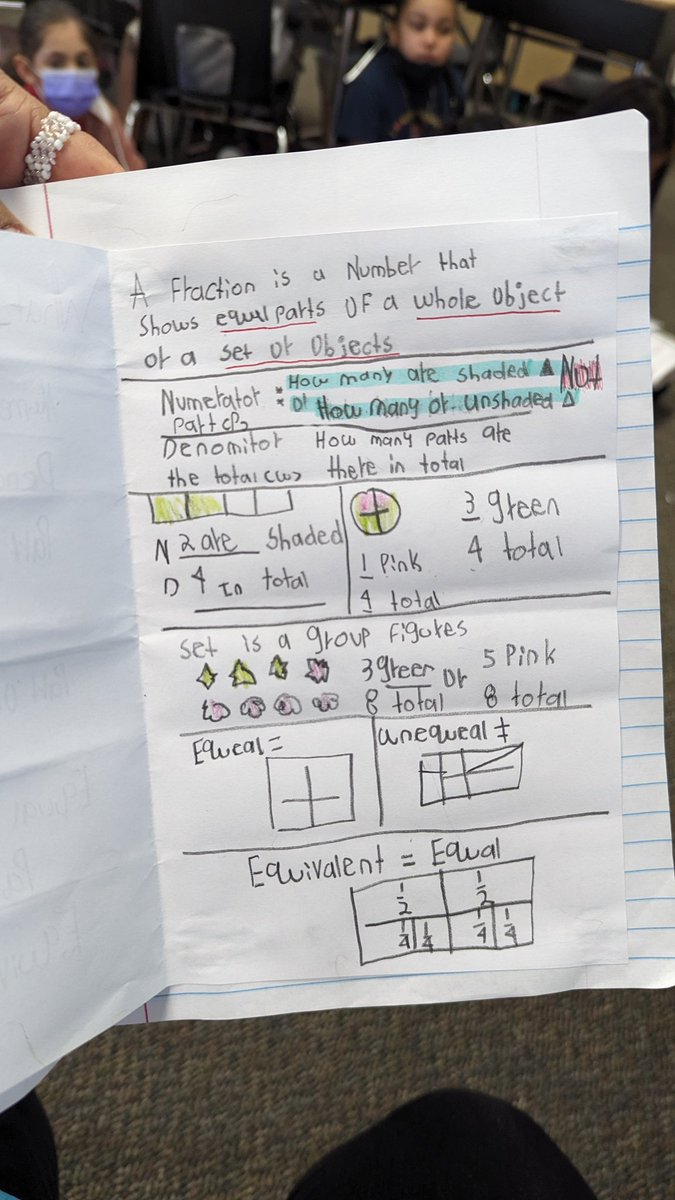 A Fraction is a Number that
Shows equal parts OF a whole object
or a set or Objects
Numerator : How many are shaded
Not
Part or How many or unshaded
Denomitor How many parts are
the total there in total
N 2 are shaded
D 4 In total
1 Pink
4 total
3 green
4 total
Set is a group Figures
3 green or 5 Pink
8 total 8 total
Equeal =
unequeal ≠
Equivalent = Equal
1/2 1/2
1/4 1/4 1/4 1/4